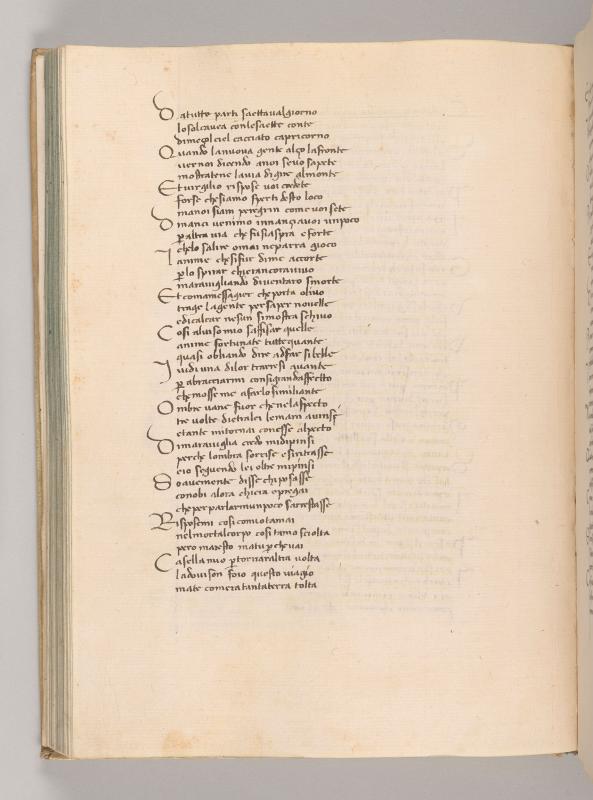 D atutte parti saettaval giorno
lo sol cavea con le saette conte
di meçol ciel cacciato capricorno
Q uando la nuova gente alço la fronte
ver noi dicendo a noi se vo sapete
mostratene la via di gire al monte
E t virgilio rispose voi credete
forse che siamo sperti desto loco
ma noi siam peregrin come voi sete
D inançi venimo innançi a voi un poco
p altra via che fu si aspra e forte
che lo salire omai ne parra gioco
L anime che si fur di me accorte
p lo spirar chi era ancora vivo
maravigliando diventaro smorte
E t come a messagier che porta olivo
tragge la gente per saper novelle
e di calcar nesun si mostra schivo
C osi al viso mio saffisar quelle
anime fortunate tutte quante
quasi obliando dire a dfar si belle
I vidi una di lor trarresi avante
p abracciarmi con si grand affecto
che mosse me a far lo similiante
O mbre vane fuor che ne laspecto
tre volte dietro a lei le mani avinse
e tante mi tornai con esse al pecto
D i maraviglia credo mi dipinsi
perche lombra sorrise e si ritrasse
e io seguendo lei oltre mi pinsi
S oavemente disse chi posasse
conobi alora chi era e pregai
che per parlarmi un poco sarrestasse
R isposemi cosi com io tamai
nel mortal corpo cosi tamo sciolta
pero maresto ma tu p che vai
C asella mio p tornar altra volta
la dov i son fo io questo viagio
ma te comera tanta terra tolta